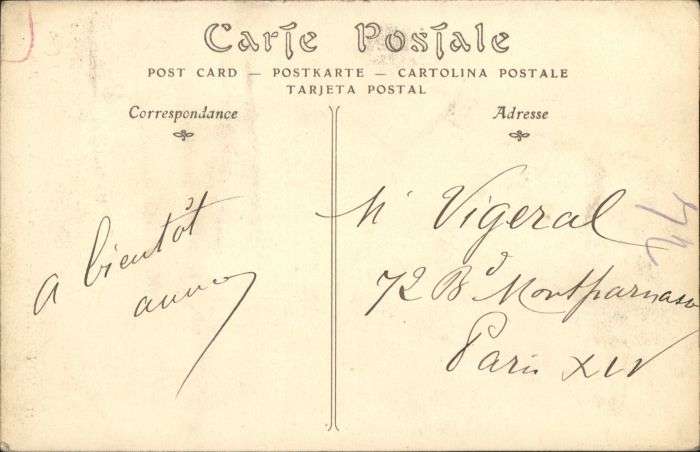 Carte Postale
POST CARD — POSTKARTE — CARTOLINA POSTALE
TARJETA POSTAL
Correspondance
Adresse
a bientôt
Mr Vigeral
72 Bd Montparnasse
Paris XIV